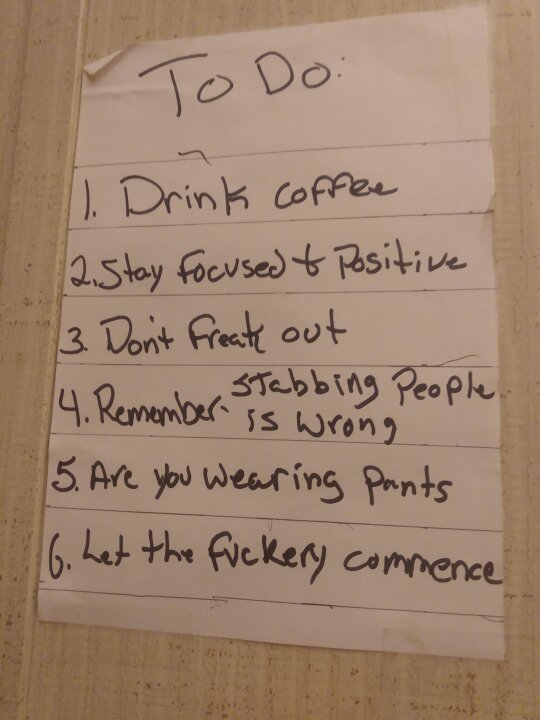 To Do:
1. Drink coffee
2. Stay focused & Positive
3. Don't freak out
4. Remember- stabbing People
is wrong
5. Are you wearing pants
6. Let the fuckery commence